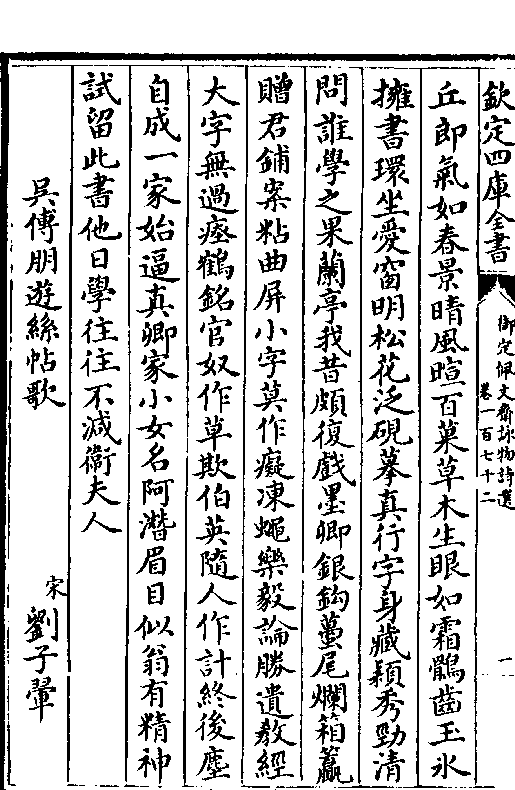 欽定四庫全書
御定佩文齋詠物詩選
卷一百七十二
一
丘郎氣如春景晴風暄百菓草木生眼如霜鶻齒玉氷
擁書環坐愛窗明松花泛硯摹真行字身藏穎秀勁清
問誰學之果蘭亭我昔頗復戲墨卿銀鈎蠆尾爛箱籯
贈君鋪案粘曲屏小字莫作癡凍蠅樂毅論勝遺教經
大字無過瘞鶴銘官奴作草欺伯英隨人作計終後塵
自成一家始逼真卿家小女名阿潛眉目似翁有精神
試留此書他日學往往不減衞夫人
吳傅朋遊絲帖歌
宋
劉子翬